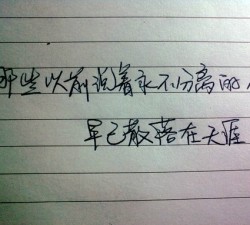 那些以前说着永不分离的
早已散落在天涯